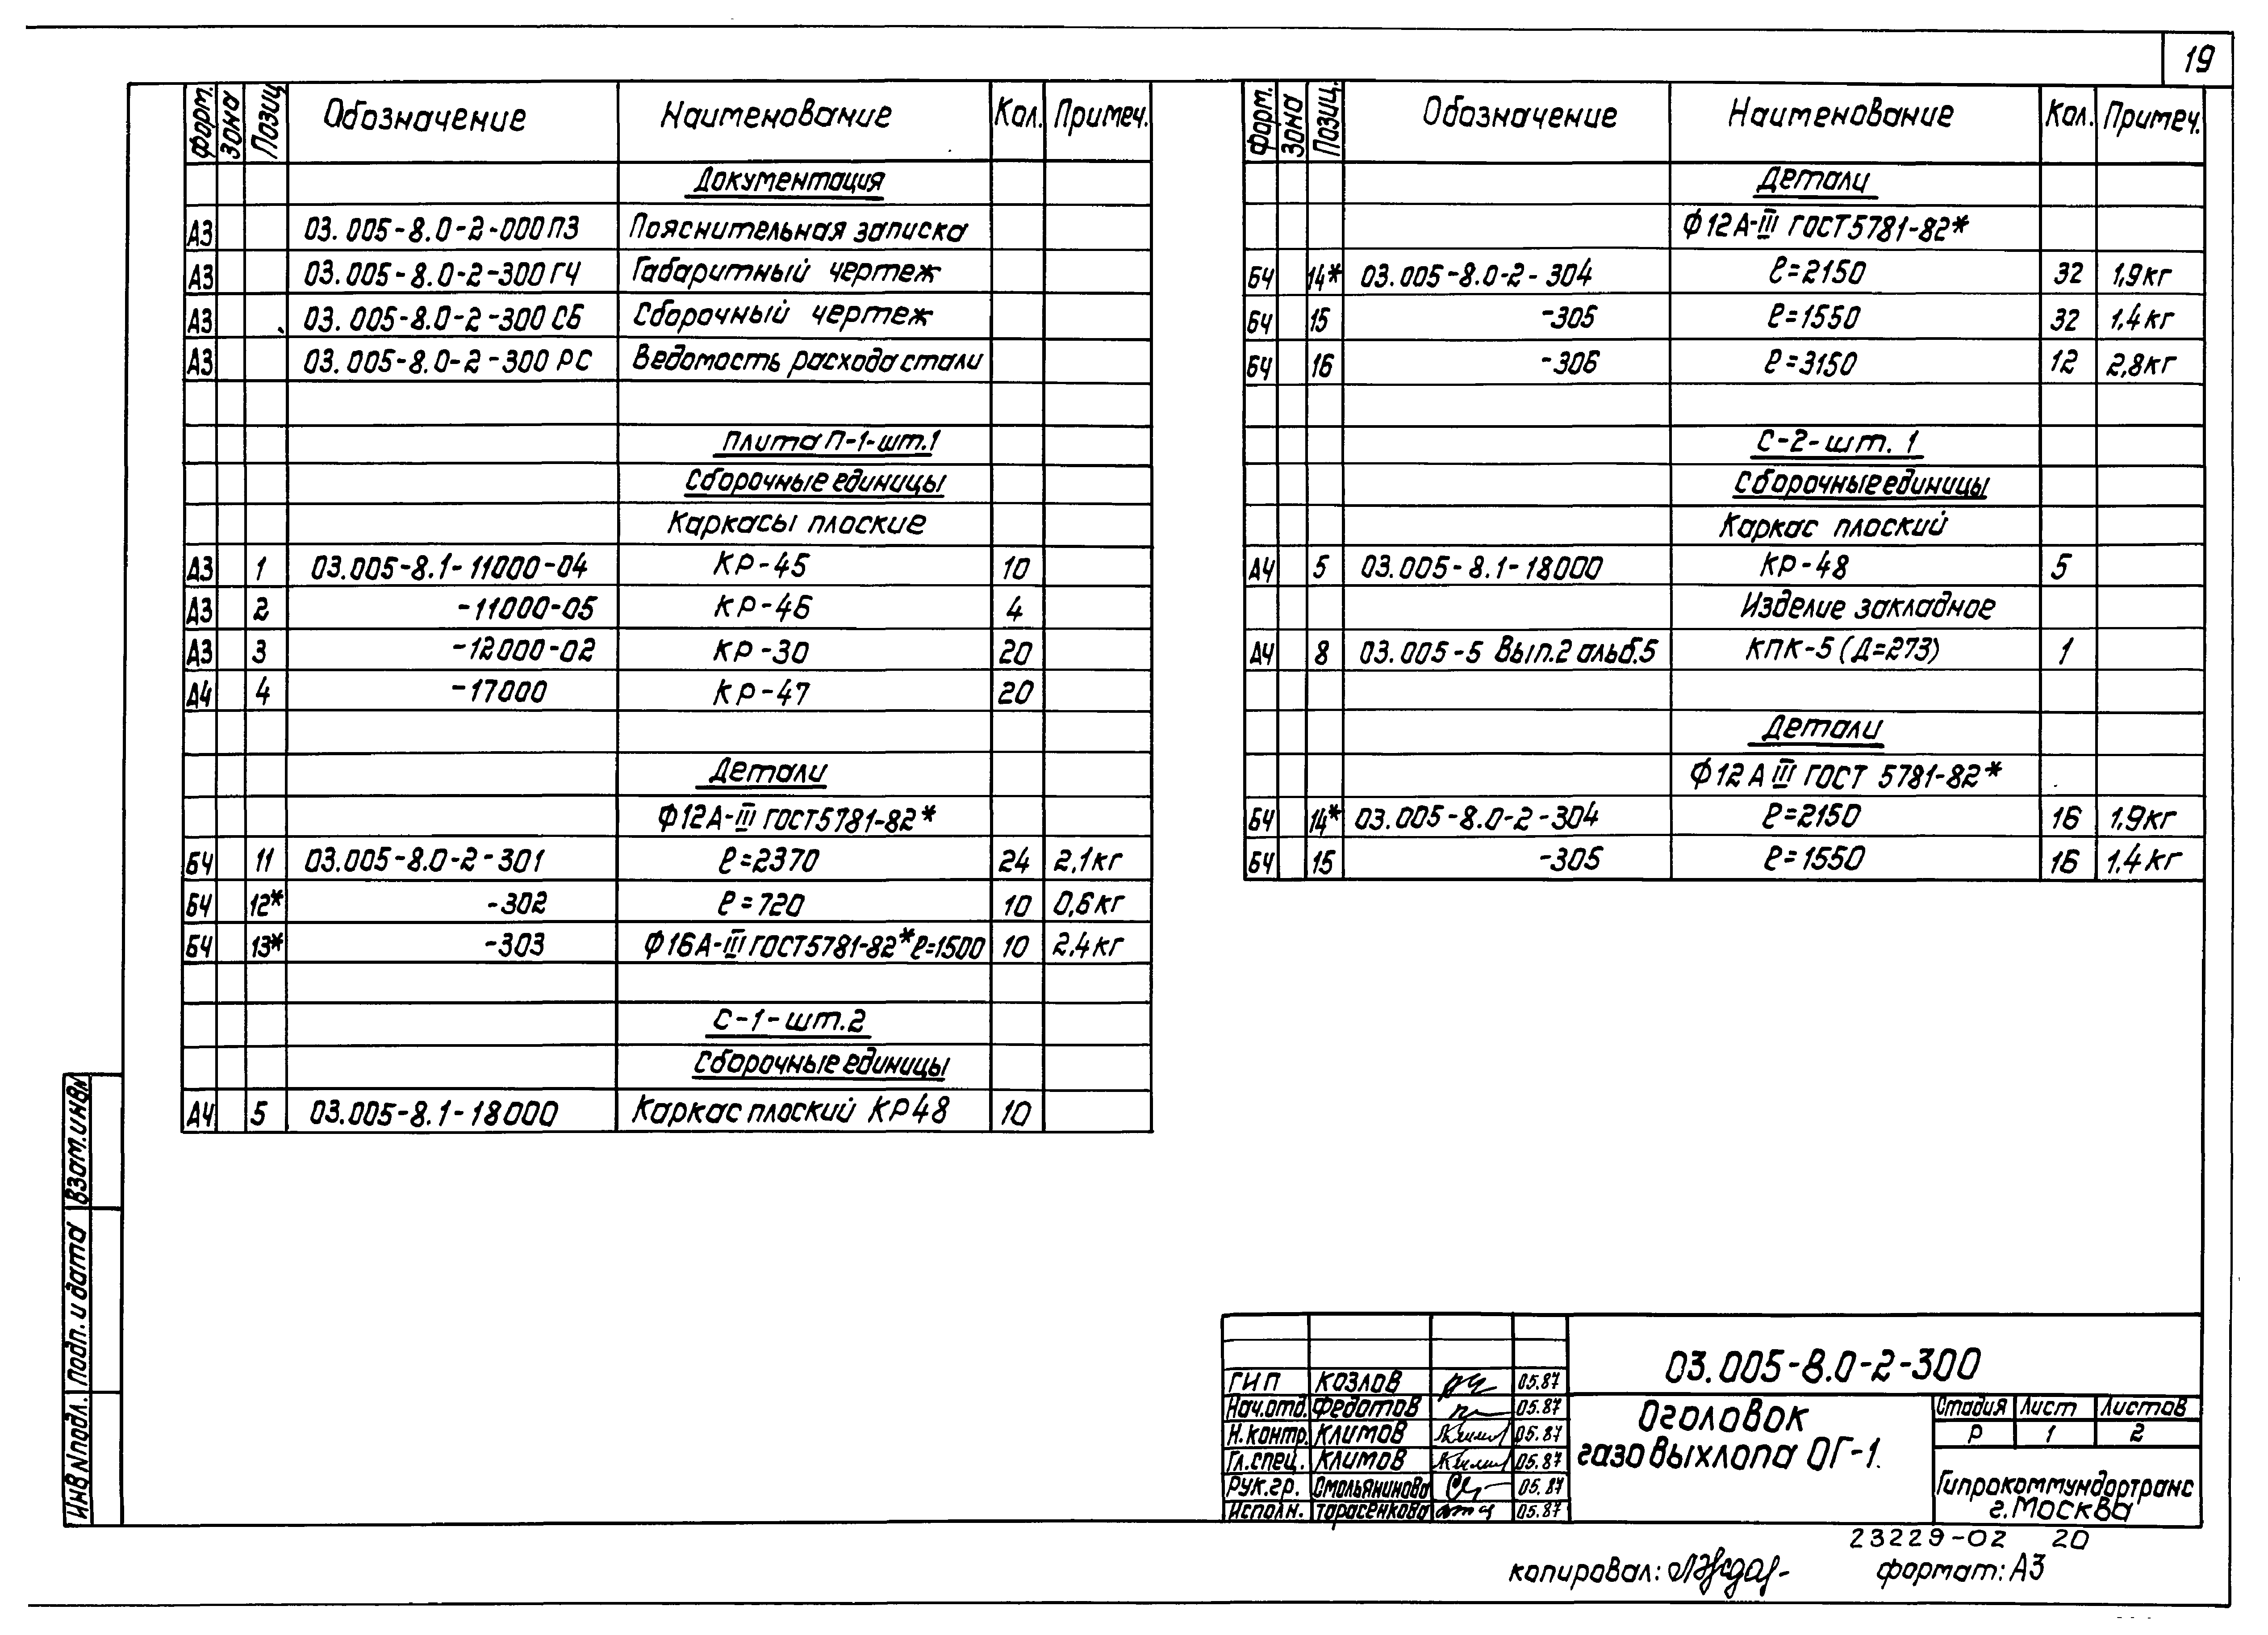 19
Форм. Зона Позиц. Обозначение Наименование Кол. Примеч.
Документация
А3 03.005-8.0-2-000ПЗ Пояснительная записка
А3 03.005-8.0-2-300ГЧ Габаритный чертеж
А3 03.005-8.0-2-300СБ Сборочный чертеж
А3 03.005-8.0-2-300РС Ведомость расхода стали
Плита П-1-шт.1
Сборочные единицы
Каркасы плоские
А3 1 03.005-8.1-11000-04 КР-45 10
А3 2 -11000-05 КР-46 4
А3 3 -12000-02 КР-30 20
А4 4 -17000 КР-47 20
Детали
Ф12А-III ГОСТ5781-82*
БЧ 11 03.005-8.0-2-301 ℓ=2370 24 2,1кг
БЧ 12* -302 ℓ=720 10 0,6кг
БЧ 13* -303 Ф16А-III ГОСТ5781-82* ℓ=1500 10 2,4кг
С-1-шт.2
Сборочные единицы
А4 5 03.005-8.1-18000 Каркас плоский КР48 10
Форм. Зона Позиц. Обозначение Наименование Кол. Примеч.
Детали
Ф12А-III ГОСТ5781-82*
БЧ 14* 03.005-8.0-2-304 ℓ=2150 32 1,9кг
БЧ 15 -305 ℓ=1550 32 1,4кг
БЧ 16 -306 ℓ=3150 12 2,8кг
С-2-шт. 1
Сборочные единицы
Каркас плоский
А4 5 03.005-8.1-18000 КР-48 5
Изделие закладное
А4 8 03.005-5 Вып.2 альб.5 КПК-5 (Д=273) 1
Детали
Ф12 А III ГОСТ 5781-82*
БЧ 14* 03.005-8.0-2-304 ℓ=2150 16 1,9кг
БЧ 15 -305 ℓ=1550 16 1,4кг
Взам.инвN
Подп. и дата
Инв Nподл.
03.005-8.0-2-300
ГИП Козлов 05.87
Нач.отд. Федотов 05.87
Н.контр. Климов 05.87
Гл.спец. Климов 05.87
Рук.гр. Смольянинова 05.87
Исполн. Тарасенкова 05.87
Оголовок
газовыхлопа ОГ-1.
Стадия Лист Листов
Р 1 2
Гипрокоммундортранс
г.Москва
23229-02 20
копировал: формат: А3